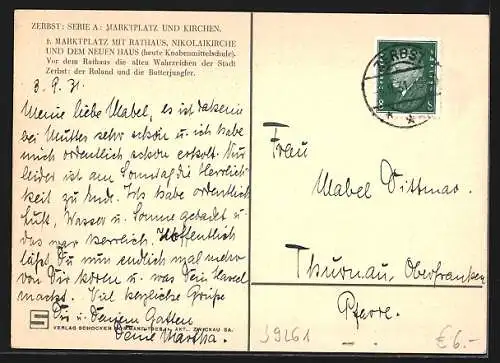 ZERBST: SERIE A: MARKTPLATZ UND KIRCHEN.
1. MARKTPLATZ MIT RATHAUS, NIKOLAIKIRCHE
UND DEM NEUEN HAUS (heute Knabenmittelschule).
Vor dem Rathaus die alten Wahrzeichen der Stadt
Zerbst: der Roland und die Butterjungfer.
3.9.31.
Meine liebe Mabel, es ist daheim
bei Mutter sehr schön u. ich habe
mich ordentlich schon erholt. Nur
leider ist am Sonntag die Herrlich-
keit zu Ende. Ich habe ordentlich
Luft, Wasser u. Sonne gebadet u.
das war herrlich. Hoffentlich
läßt Du nun endlich mal mehr
von Dir hören u. was Dein
macht. Viel herzliche Grüße
Dir u. Deinem Gatten
Deine Martha.
ZERBST
Frau
Mabel Dittmar.
Thurnau, Oberfranken
Pfarre.
S
VERLAG SCHOCKEN AKT., ZWICKAU SA.
J9261
€ 6.-